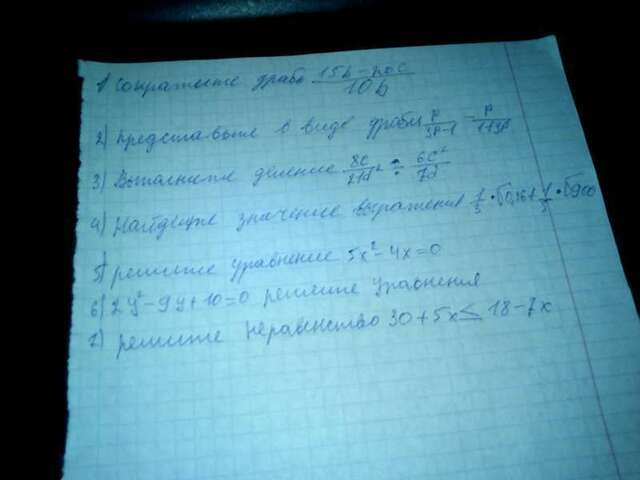 1) Сократите дробь (15b-20c)/(10b)
2) представьте в виде дроби p/(3p-1) - p/(1+3p)
3) Выполните деление 8c/(21d²) ÷ 6c²/(7d)
4) Найдите значение выражения 1/5 • √0,36 + • √900
5) решите уравнение 5x²-4x=0
6) 2y²-9y+10=0 решите уравнения
7) решите неравенство 30+5x≤18-7x